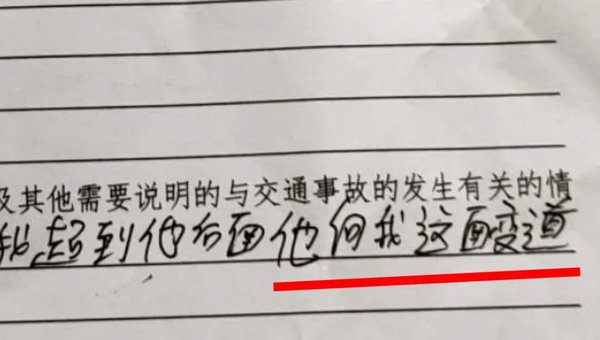 及其他需要说明的与交通事故的发生有关的情
我超到他后面他向我这面变道